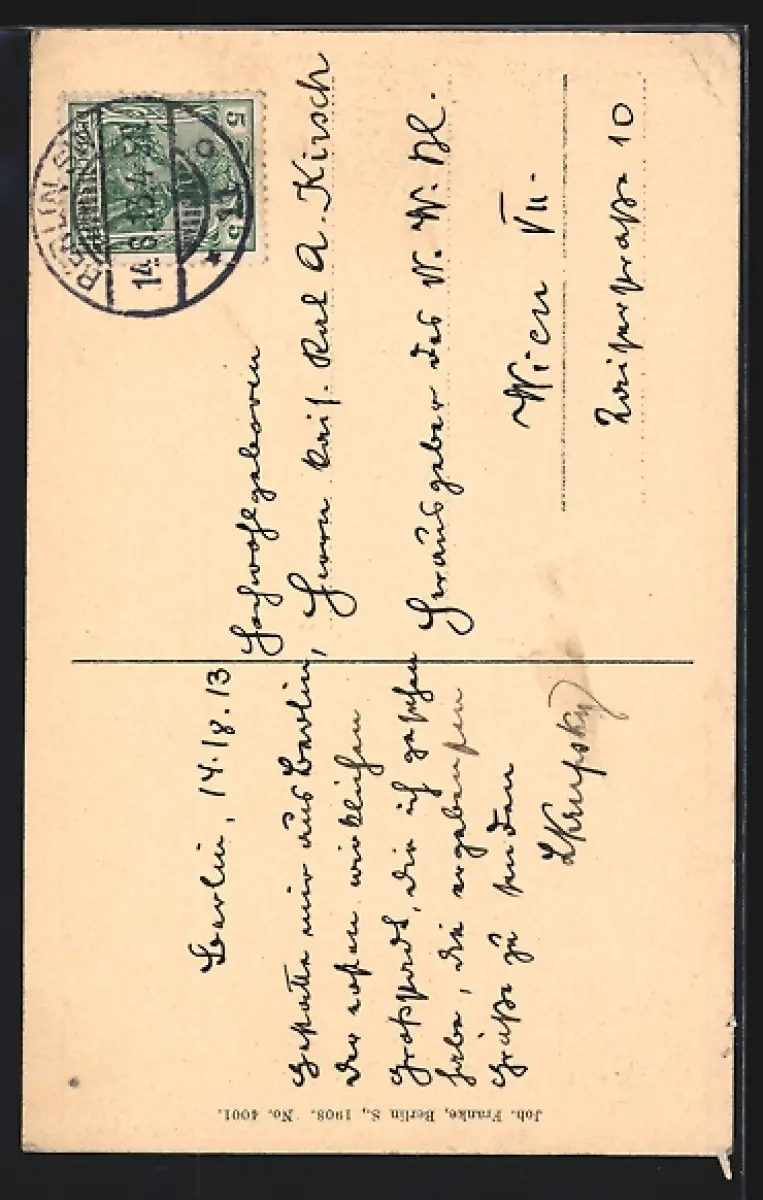 Berlin, 14./8.13
Gestatte mir aus Berlin,
der ersten wirklichen
Großstadt, die ich gesehen
habe, die ergebensten
Grüße zu senden
LKrupsky
Hochwohlgeboren
Herrn kais. Rat A. Kirsch
Herausgeber des N. W. Bl.
Wien VII.
Kaiserstraße 10
BERLIN
14.8.13.4-5N.
5
5
DEUTSCHES REICH
Joh. Franke, Berlin S., 1908. No. 4001.